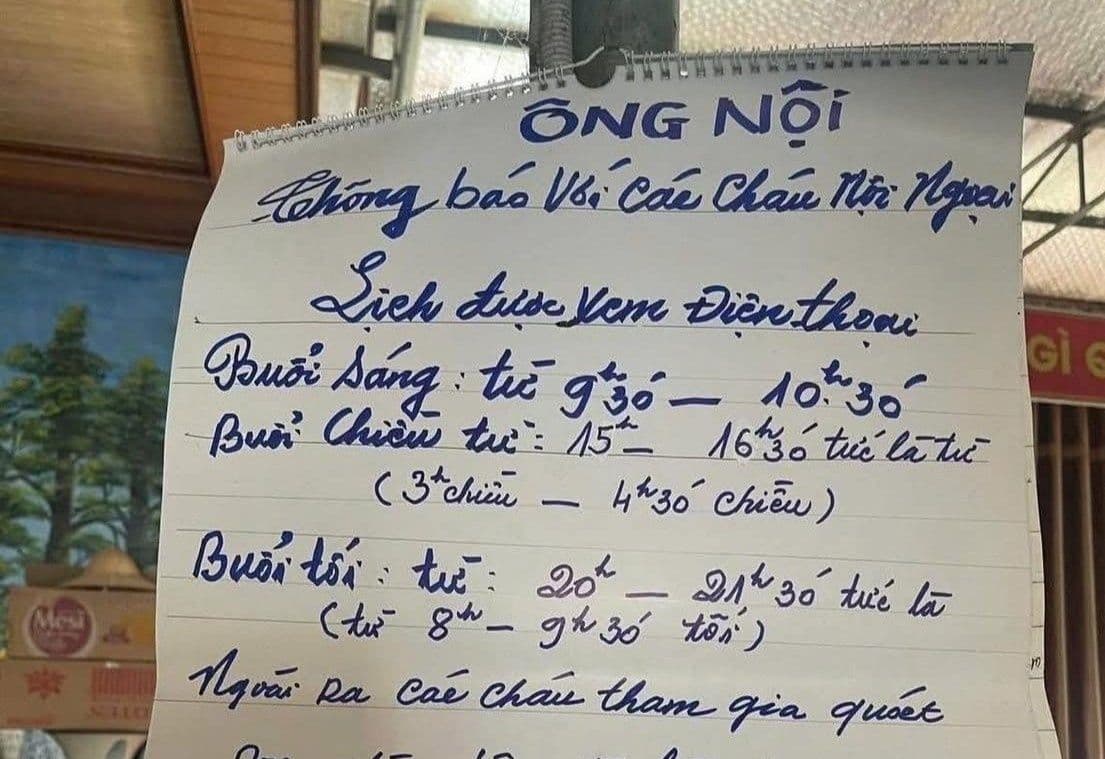 ÔNG NỘI
Thông báo Với Các Cháu Nội Ngoại
Lịch được xem Điện thoại
Buổi Sáng: từ 9h30 — 10h30
Buổi Chiều từ: 15h — 16h30 tức là từ
(3h chiều — 4h30 chiều)
Buổi tối: từ: 20h — 21h30 tức là
(từ 8h — 9h30 tối)
Ngoài ra các cháu tham gia quét
GÌ
Mesi